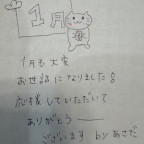 1月
1月も大変
お世話になりました
応援していただいて
ありがとう――
ございます by あさだ